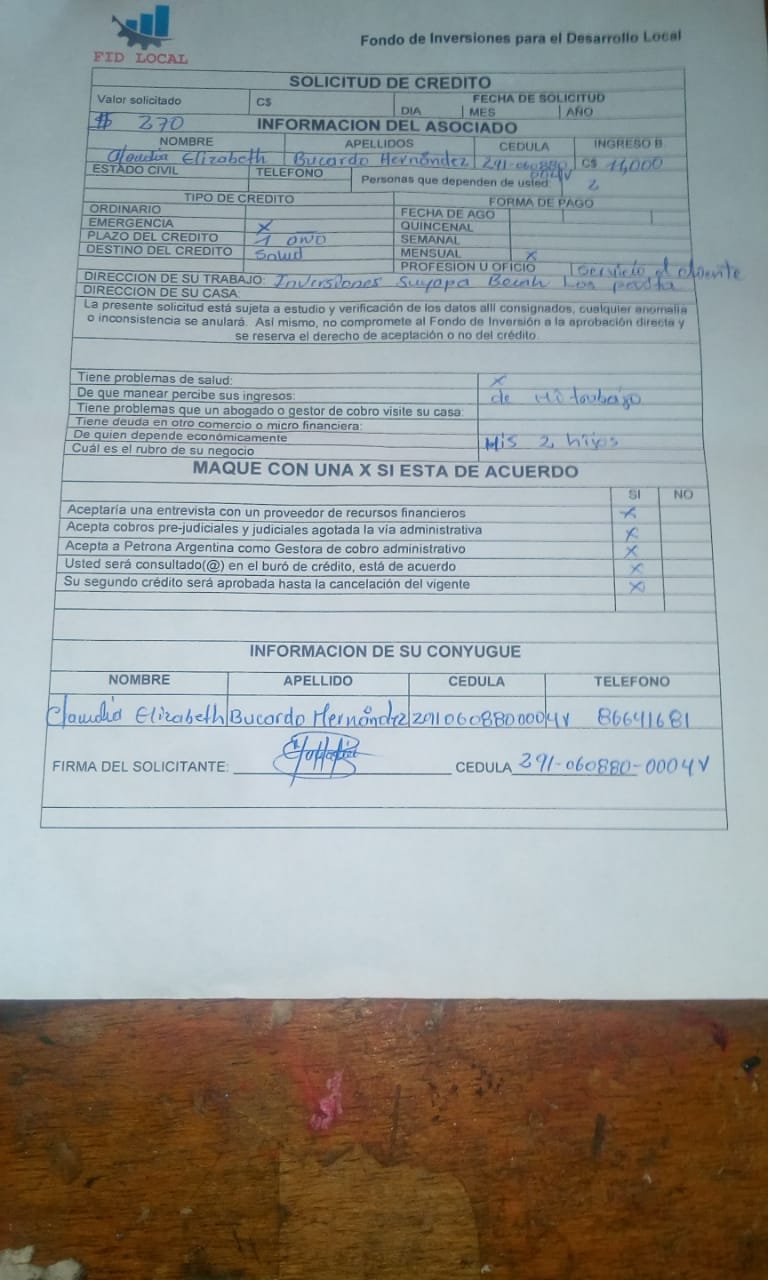 Fondo de Inversiones para el Desarrollo Local
FID LOCAL
SOLICITUD DE CREDITO
Valor solicitado C$ FECHA DE SOLICITUD
DIA MES AÑO
$ 270 INFORMACION DEL ASOCIADO
NOMBRE APELLIDOS CEDULA INGRESO B.
Claudia Elizabeth Bucardo Hernández 291-060880 0004V C$ 11,000
ESTADO CIVIL TELEFONO Personas que dependen de usted: 2
TIPO DE CREDITO FORMA DE PAGO
ORDINARIO FECHA DE AGO
EMERGENCIA X QUINCENAL
PLAZO DEL CREDITO 1 año SEMANAL
DESTINO DEL CREDITO Salud MENSUAL X
PROFESION U OFICIO Servicio al cliente
DIRECCION DE SU TRABAJO: Inversiones Suyapa
DIRECCION DE SU CASA:
La presente solicitud está sujeta a estudio y verificación de los datos allí consignados, cualquier anomalía
o inconsistencia se anulará. Así mismo, no compromete al Fondo de Inversión a la aprobación directa y
se reserva el derecho de aceptación o no del crédito.
Tiene problemas de salud: X
De que manear percibe sus ingresos: de Mi
Tiene problemas que un abogado o gestor de cobro visite su casa:
Tiene deuda en otro comercio o micro financiera:
De quien depende económicamente Mis 2 hijos
Cuál es el rubro de su negocio
MAQUE CON UNA X SI ESTA DE ACUERDO
SI NO
Aceptaría una entrevista con un proveedor de recursos financieros X
Acepta cobros pre-judiciales y judiciales agotada la vía administrativa X
Acepta a Petrona Argentina como Gestora de cobro administrativo X
Usted será consultado(@) en el buró de crédito, está de acuerdo X
Su segundo crédito será aprobada hasta la cancelación del vigente X
INFORMACION DE SU CONYUGUE
NOMBRE APELLIDO CEDULA TELEFONO
Claudia Elizabeth Bucardo Hernández 2910608800004V 86641681
FIRMA DEL SOLICITANTE: CEDULA 291-060880-0004V